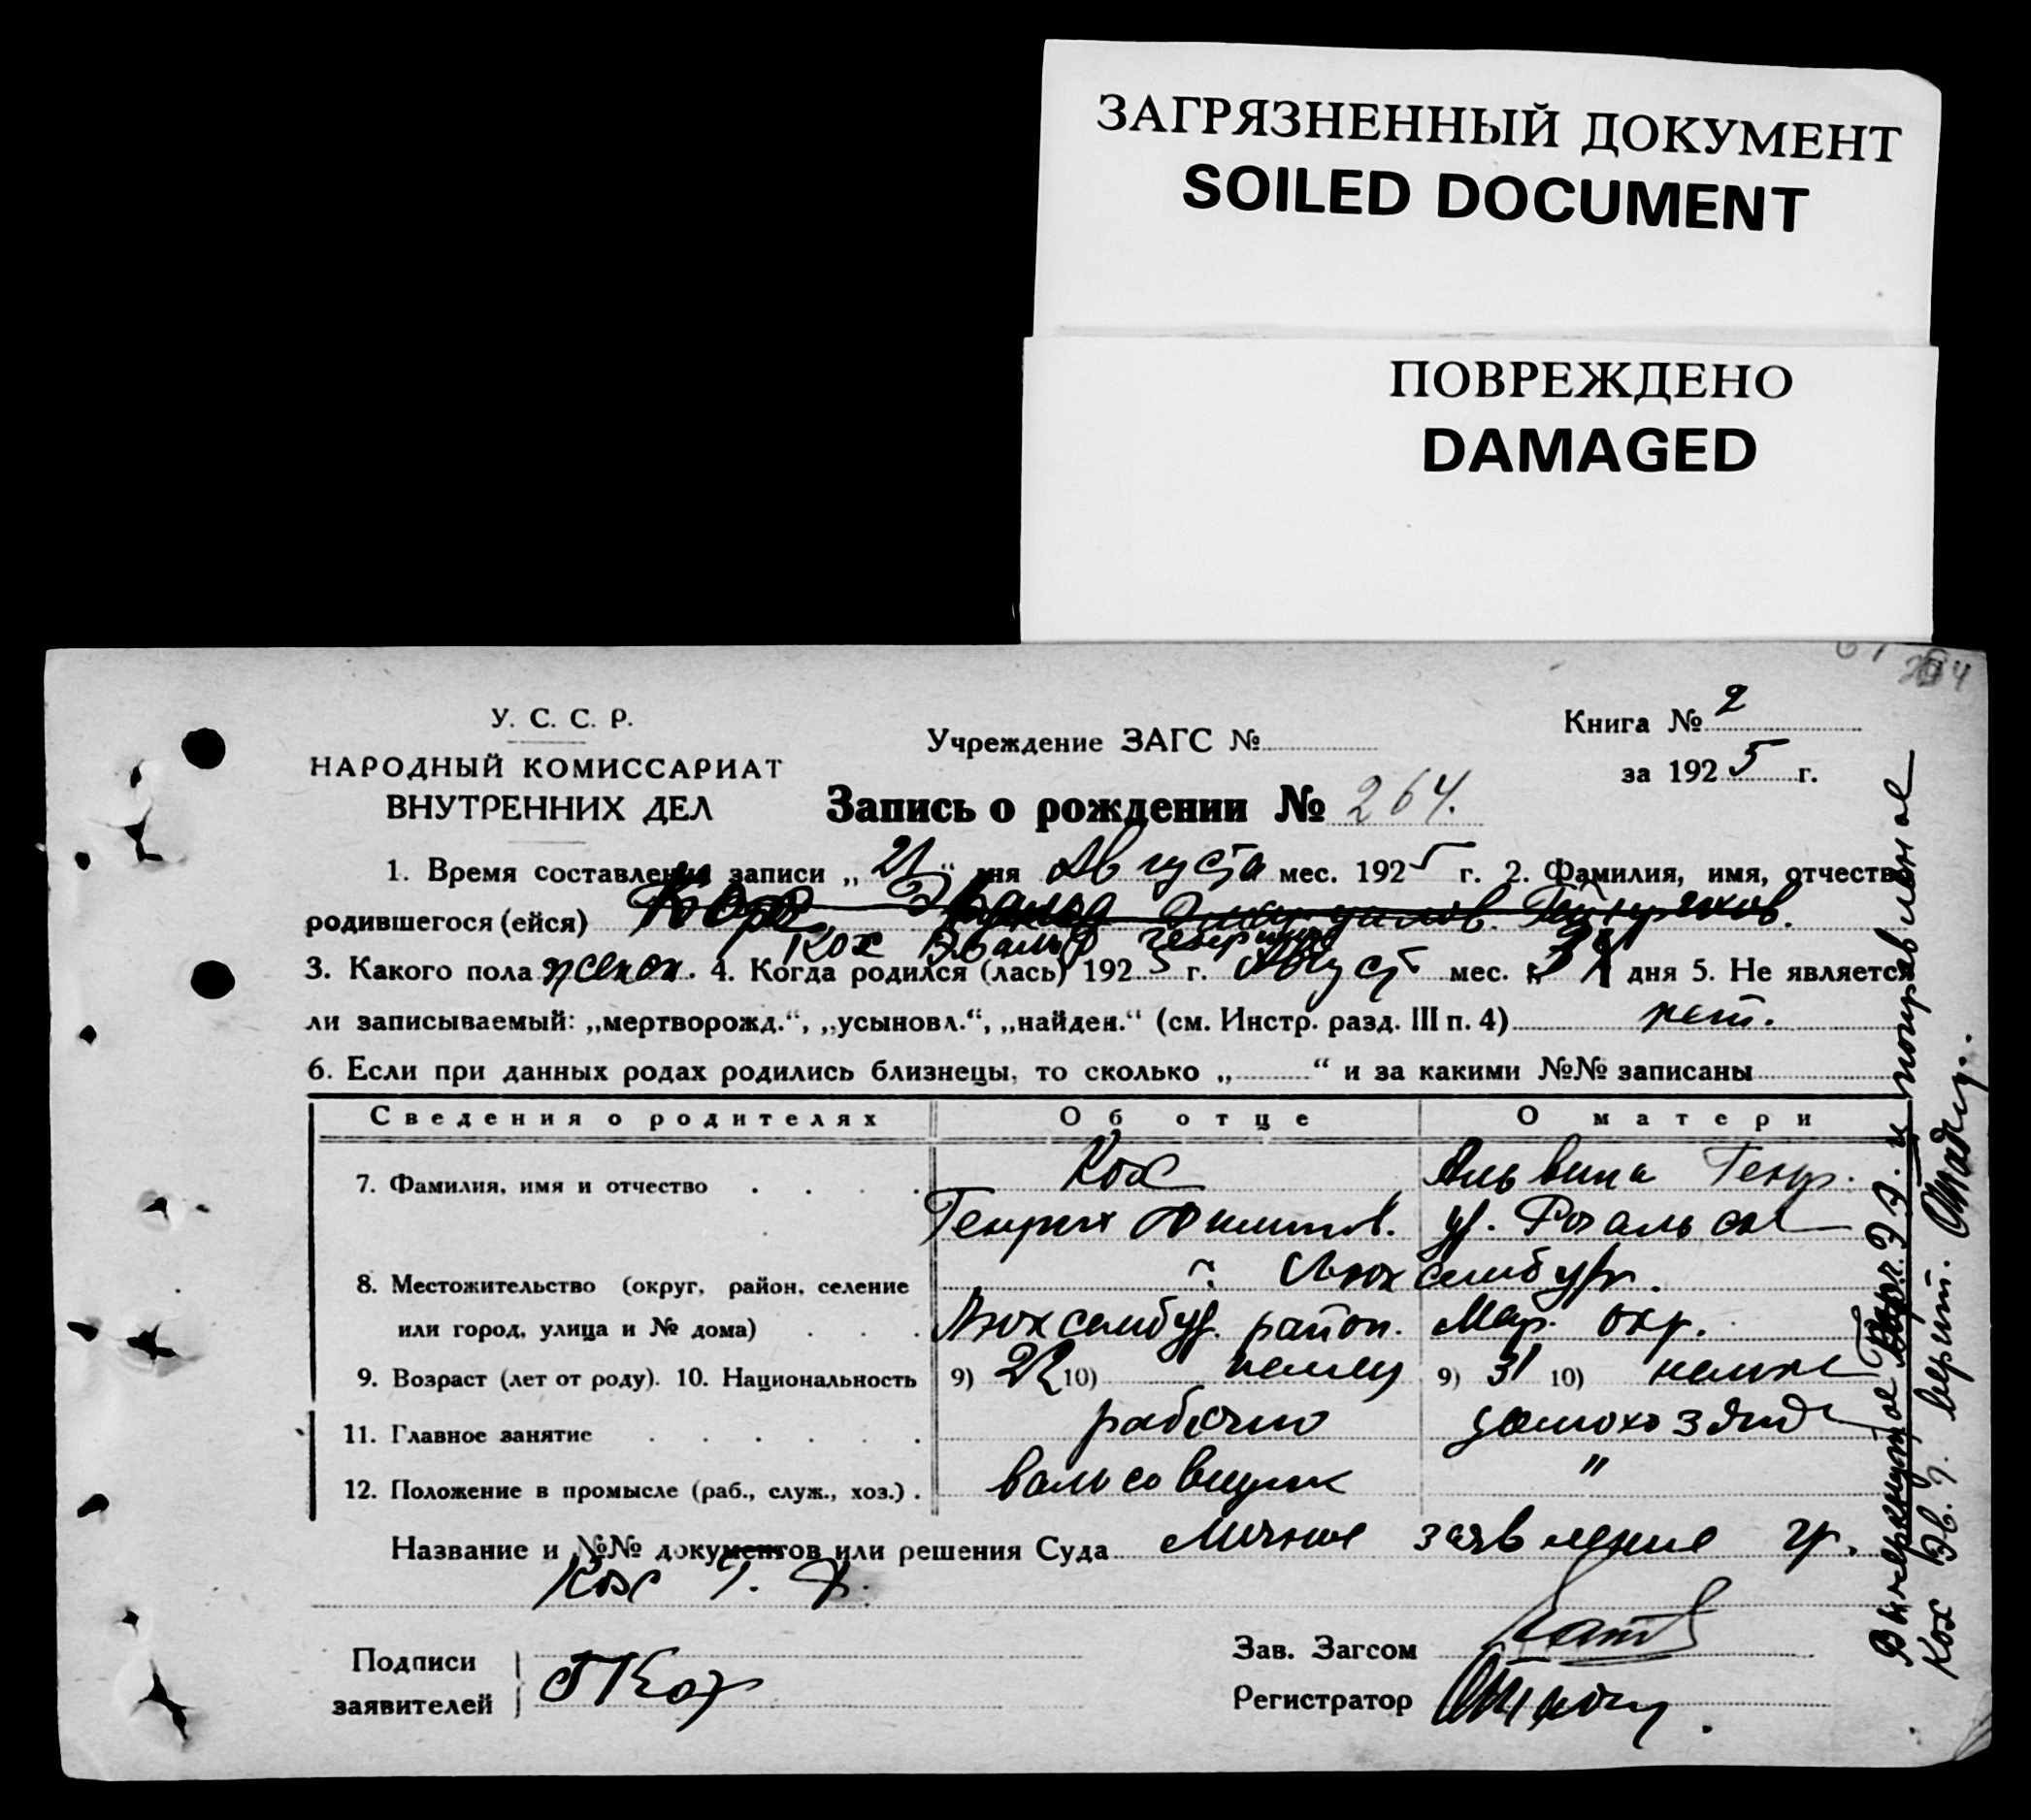 ЗАГРЯЗНЕННЫЙ ДОКУМЕНТ
SOILED DOCUMENT
ПОВРЕЖДЕНО
DAMAGED
У. С. С. Р.
НАРОДНЫЙ КОМИССАРИАТ
ВНУТРЕННИХ ДЕЛ
Учреждение ЗАГС №
Книга № 2
за 1925 г.
Запись о рождении № 264.
1. Время составления записи „21“ дня Августа мес. 1925 г. 2. Фамилия, имя, отчество
родившегося (ейся)
Кох Эвальд Генрихов
3. Какого пола женск. 4. Когда родился (лась) 1925 г. Август мес. „ дня 5. Не является
ли записываемый: „мертворожд.“, „усыновл.“, „найден.“ (см. Инстр. разд. III п. 4) нет.
6. Если при данных родах родились близнецы, то сколько „ “ и за какими №№ записаны
Сведения о родителях Об отце О матери
7. Фамилия, имя и отчество Кох Альвина Генр.
Генрих
8. Местожительство (округ, район, селение Люксембург.
или город, улица и № дома) Люксембург. район. Мар. окр.
9. Возраст (лет от роду). 10. Национальность 9) 22 10) немец 9) 31 10) немка
11. Главное занятие рабочий домохоз
12. Положение в промысле (раб., служ., хоз.) вальсовщик "
Название и №№ документов или решения Суда Личное заявление гр.
Кох Г.
Подписи
заявителей Г Кох
Зав. Загсом
Регистратор
Вычеркнутое и поправленное
Кох Эв. Г. верить.